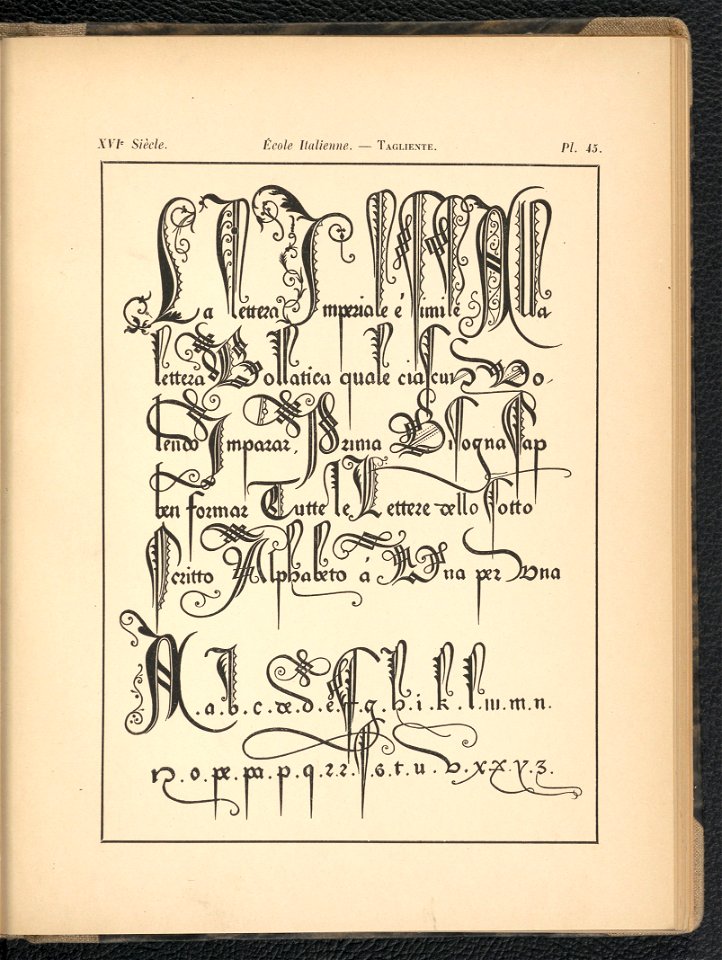 XVIᵉ Siècle. École Italienne. — TAGLIENTE. Pl. 45.
La lettera Imperiale é simile Ala
lettera Bollatica quale ciascun Vo-
lendo Imparar, Prima Bisogna sap
ben formar Tutte le Lettere dello sotto
scritto Alphabeto á Una per Una
A.a.b.c.de.d.e.f.g.h.i.k.l.m.n.
o.pe.pa.p.q.r.s.t.u.v.x.y.z.